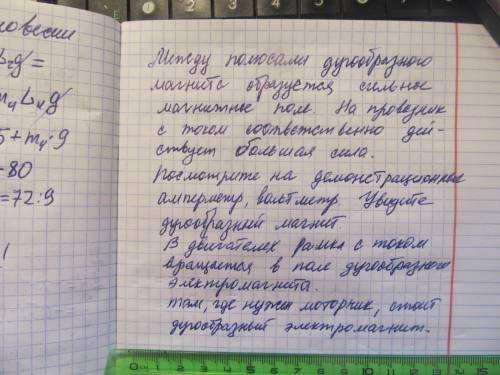 ловесии
L₂g =
m₄ L₄ g
5 + m₄ · 9
= 80
= 72 : 9
Между полюсами дугообразного
магнита образуется сильные
магнитные поле. На проводник
с током соответственно дей-
ствует большая сила.
Посмотрите на демонстрационные
амперметр, вольтметр. Увидите
дугообразный магнит.
В двигателях рамка с током
вращается в поле дугообразного
электромагнита.
Там, где нужен моторчик, стоит
дугообразный электромагнит.
0см 1 2 3 4 5 6 7 8 9 10 11 12 13 14 15